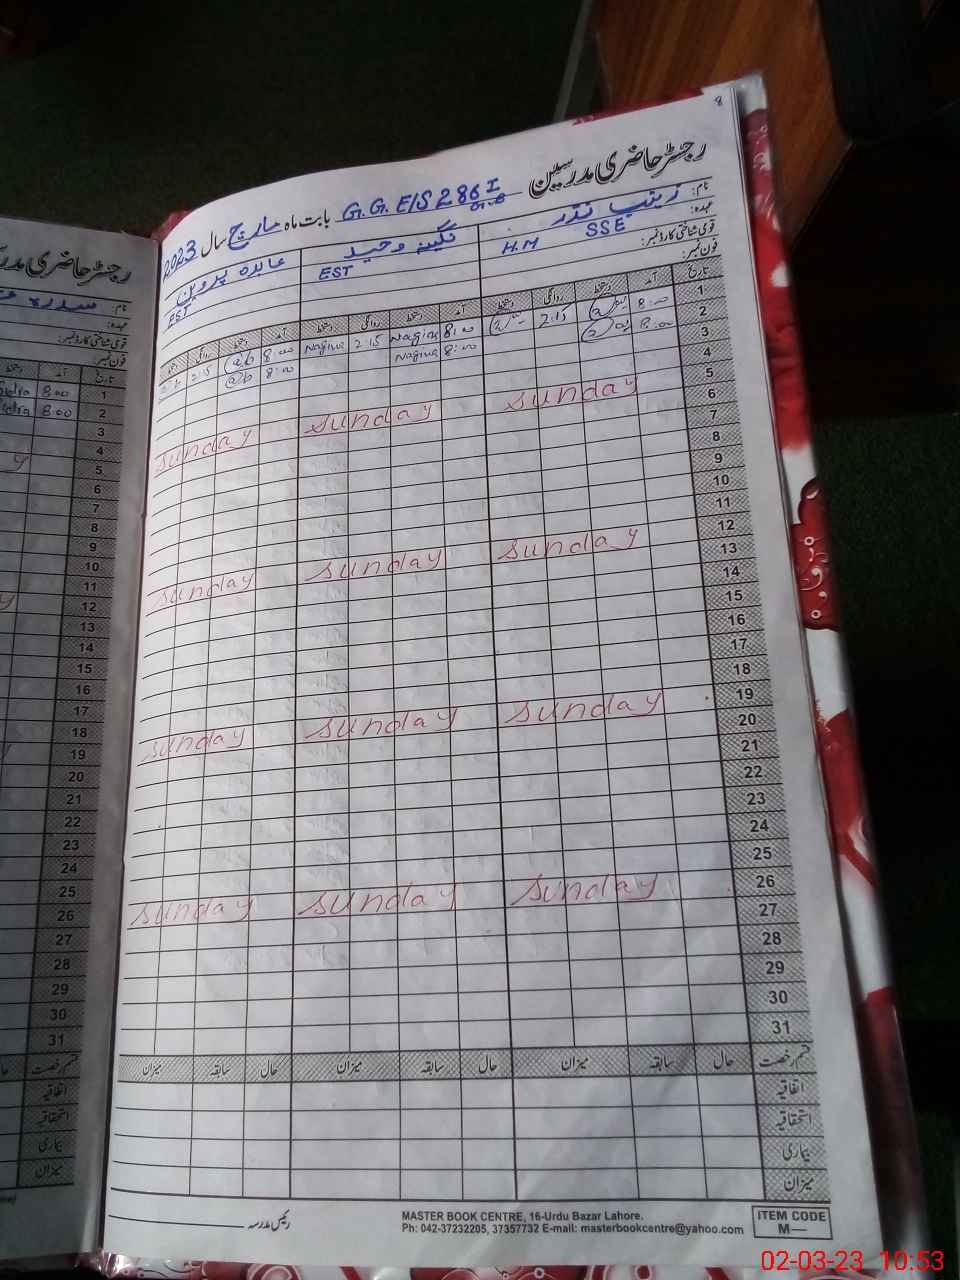 8
رجسٹر حاضری مدرسین G.G.E/S 286 I G.B بابت ماہ مارچ سال 2023
نام: زینب نذر نگینہ وحید عابدہ پروین
عہدہ: SSE H.M EST EST
قومی شناختی کارڈ نمبر:
فون نمبر:
تاریخ آمد دستخط روانگی دستخط آمد دستخط روانگی دستخط آمد دستخط روانگی دستخط
1 8:00 2:15 8:00 Nagina 2:15 Nagina 8:00 2:15
2 8:00 8:00 Nagina 8:00
3
4
5 Sunday Sunday Sunday
6
7
8
9
10
11
12 Sunday Sunday Sunday
13
14
15
16
17
18
19 Sunday Sunday Sunday
20
21
22
23
24
25
26 Sunday Sunday Sunday
27
28
29
30
31
قسم رخصت حال سابقہ میزان حال سابقہ میزان حال سابقہ میزان
اتفاقیہ
استحقاقیہ
بیماری
میزان
رئیس مدرسہ
MASTER BOOK CENTRE, 16-Urdu Bazar Lahore.
Ph: 042-37232205, 37357732 E-mail: masterbookcentre@yahoo.com
ITEM CODE
M—
رجسٹر حاضری
نام: سدرہ
عہدہ:
قومی شناختی کارڈ نمبر:
فون نمبر:
تاریخ آمد دستخط
1 8:00
2 8:00
3
4
5
6
7
8
9
10
11
12
13
14
15
16
17
18
19
20
21
22
23
24
25
26
27
28
29
30
31
قسم رخصت
اتفاقیہ
استحقاقیہ
بیماری
میزان
02-03-23 10:53